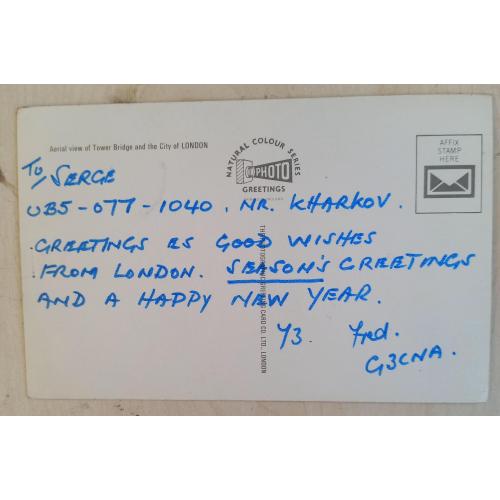 Aerial view of Tower Bridge and the City of LONDON
NATURAL COLOUR SERIES
PHOTO
GREETINGS
AFFIX
STAMP
HERE
To SERGE
UB5-077-1040. NR. KHARKOV.
GREETINGS ES GOOD WISHES
FROM LONDON. SEASON'S GREETINGS
AND A HAPPY NEW YEAR.
73. Fred.
G3CNA.
CARD CO. LTD., LONDON